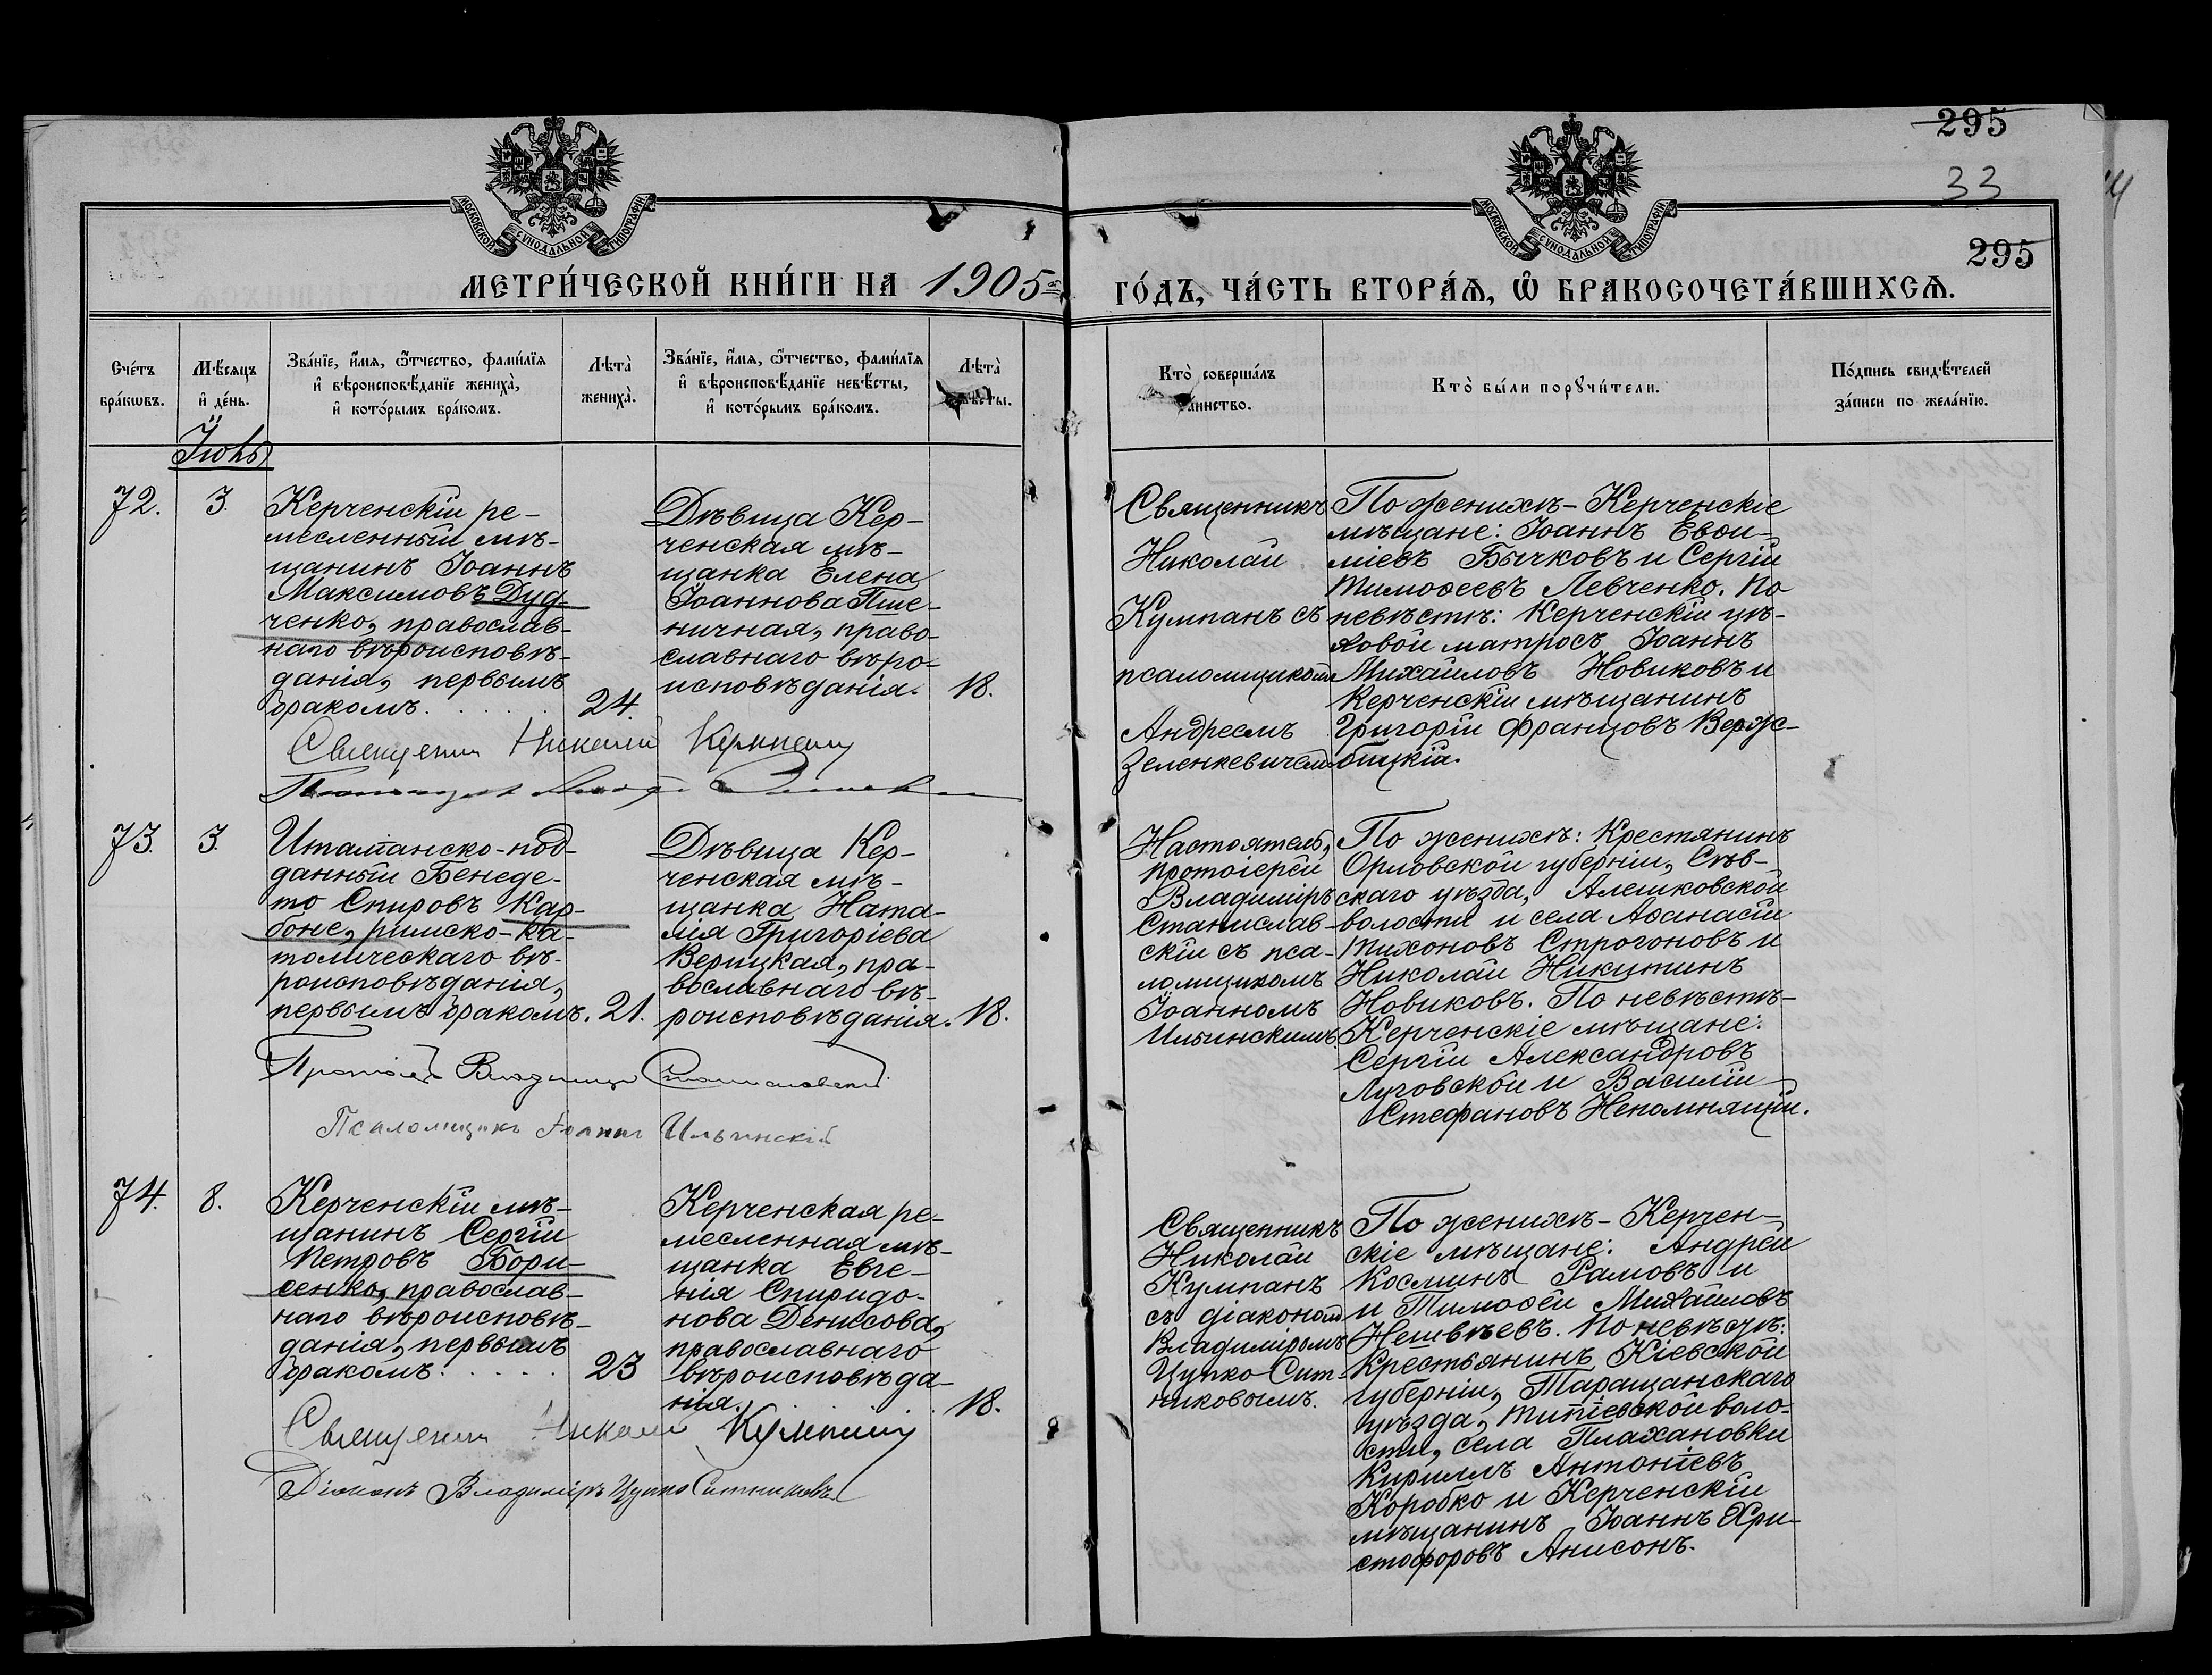 295
33
МОСКОВСКОЙ СУНОДАЛЬНОЙ ТИПОГРАФІИ
МОСКОВСКОЙ СУНОДАЛЬНОЙ ТИПОГРАФІИ
295
МЕТРИ́ЧЕСКОЙ КНИ́ГИ НА 1905 й
ГО́ДЪ, ЧА́СТЬ ВТОРА́Ѧ, Ѡ҆ БРАКОСОЧЕТА́ВШИХСѦ.
Сче́тъ
бра́кωвъ.
Мѣ́сяцъ
и҆ де́нь.
Зва́нїе, и҆́мя, ѻ҆́тчество, фами́лїя
и҆ вѣроисповѣ́данїе жениха̀,
и҆ кото́рымъ бра́комъ.
Лѣта̀
жениха̀.
Зва́нїе, и҆́мя, ѻ҆́тчество, фами́лїя
и҆ вѣроисповѣ́данїе невѣ́сты,
и҆ кото́рымъ бра́комъ.
Лѣта̀
Кто̀ соверша́лъ
таинство.
Кто̀ бы́ли порꙋчи́тели.
По́дпись свидѣ́телей
за́писи по жела́нїю.
Іюнь
72.
3.
Керченскій ре-
месленный мѣ-
щанинъ Іоаннъ
Максимовъ Дуд-
ченко, православ-
наго вѣроисповѣ-
данія, первымъ
бракомъ.
24.
Дѣвица Кер-
ченская мѣ-
щанка Елена
Іоаннова Пше-
ничная, право-
славнаго вѣро-
исповѣданія.
18.
Священникъ
Николай
Кумпанъ съ
псаломщикомъ
Андреемъ
Зеленкевичемъ
По женихѣ - Керченскіе
мѣщане: Іоаннъ Евфи-
міевъ Бычковъ и Сергій
Тимоѳеевъ Левченко. По
невѣстѣ: Керченскій цѣ-
ховой матросъ Іоаннъ
Михайловъ Новиковъ и
Керченскій мѣщанинъ
Григорій Францовъ Верж-
бицкій.
Священникъ Николай Кумпанъ
73.
3.
Италіанско-под-
данный Бенеде-
то Спировъ Кар-
боне, римско-ка-
толическаго вѣ-
роисповѣданія,
первымъ бракомъ.
21.
Дѣвица Кер-
ченская мѣ-
щанка Ната-
лія Григоріева
Верицкая, пра-
вославнаго вѣ-
роисповѣданія.
18.
Настоятель,
протоіерей
Владиміръ
Станислав-
скій съ пса-
ломщикомъ
Іоанномъ
Ильинскимъ.
По женихѣ: Крестянинъ
Орловской губерніи, Сѣв-
скаго уѣзда, Алешковской
волости и села Аѳанасій
Тихоновъ Строгоновъ и
Николай Никитинъ
Новиковъ. По невѣстѣ-
Керченскіе мѣщане:
Сергій Александровъ
Луговской и Василій
Стефановъ Непомнящій.
Протоіерей Владиміръ Станиславскій
Псаломщикъ Іоаннъ Ильинскій
74.
8.
Керченскій мѣ-
щанинъ Сергій
Петровъ Бори-
сенко, православ-
наго вѣроисповѣ-
данія, первымъ
бракомъ.
23
Керченская ре-
месленная мѣ-
щанка Евге-
нія Спиридо-
нова Денисова,
православнаго
вѣроисповѣда-
нія.
18.
Священникъ
Николай
Кумпанъ
съ діакономъ
Владиміромъ
Цупко-Сит-
никовымъ.
По женихѣ - Керчен-
скіе мѣщане: Андрей
Косминъ Рамовъ и
и Тимоѳей Михайловъ
Нешвѣевъ. По невѣстѣ:
Крестьянинъ Кіевской
губерніи, Таращанскаго
уѣзда, Титіевской воло-
сти, села Плахановки
Кириллъ Антоніевъ
Коробко и Керченскій
мѣщанинъ Іоаннъ Хри-
стофоровъ Анисонъ.
Священникъ Николай Кумпанъ
Діаконъ Владиміръ Цупко Ситниковъ